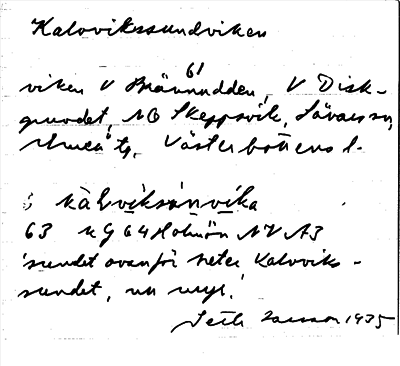 Kalovikssundviken
61
viken V Brännudden, V Disk-
grundet, NO Skeppsvik, Sävars sn,
Umeå tg. Västerbottens l.
kàlviksànvika
63 KG 64 Holmön NV A3
sundet ovanför heter Kaloviks-
sundet, nu myr.
1935